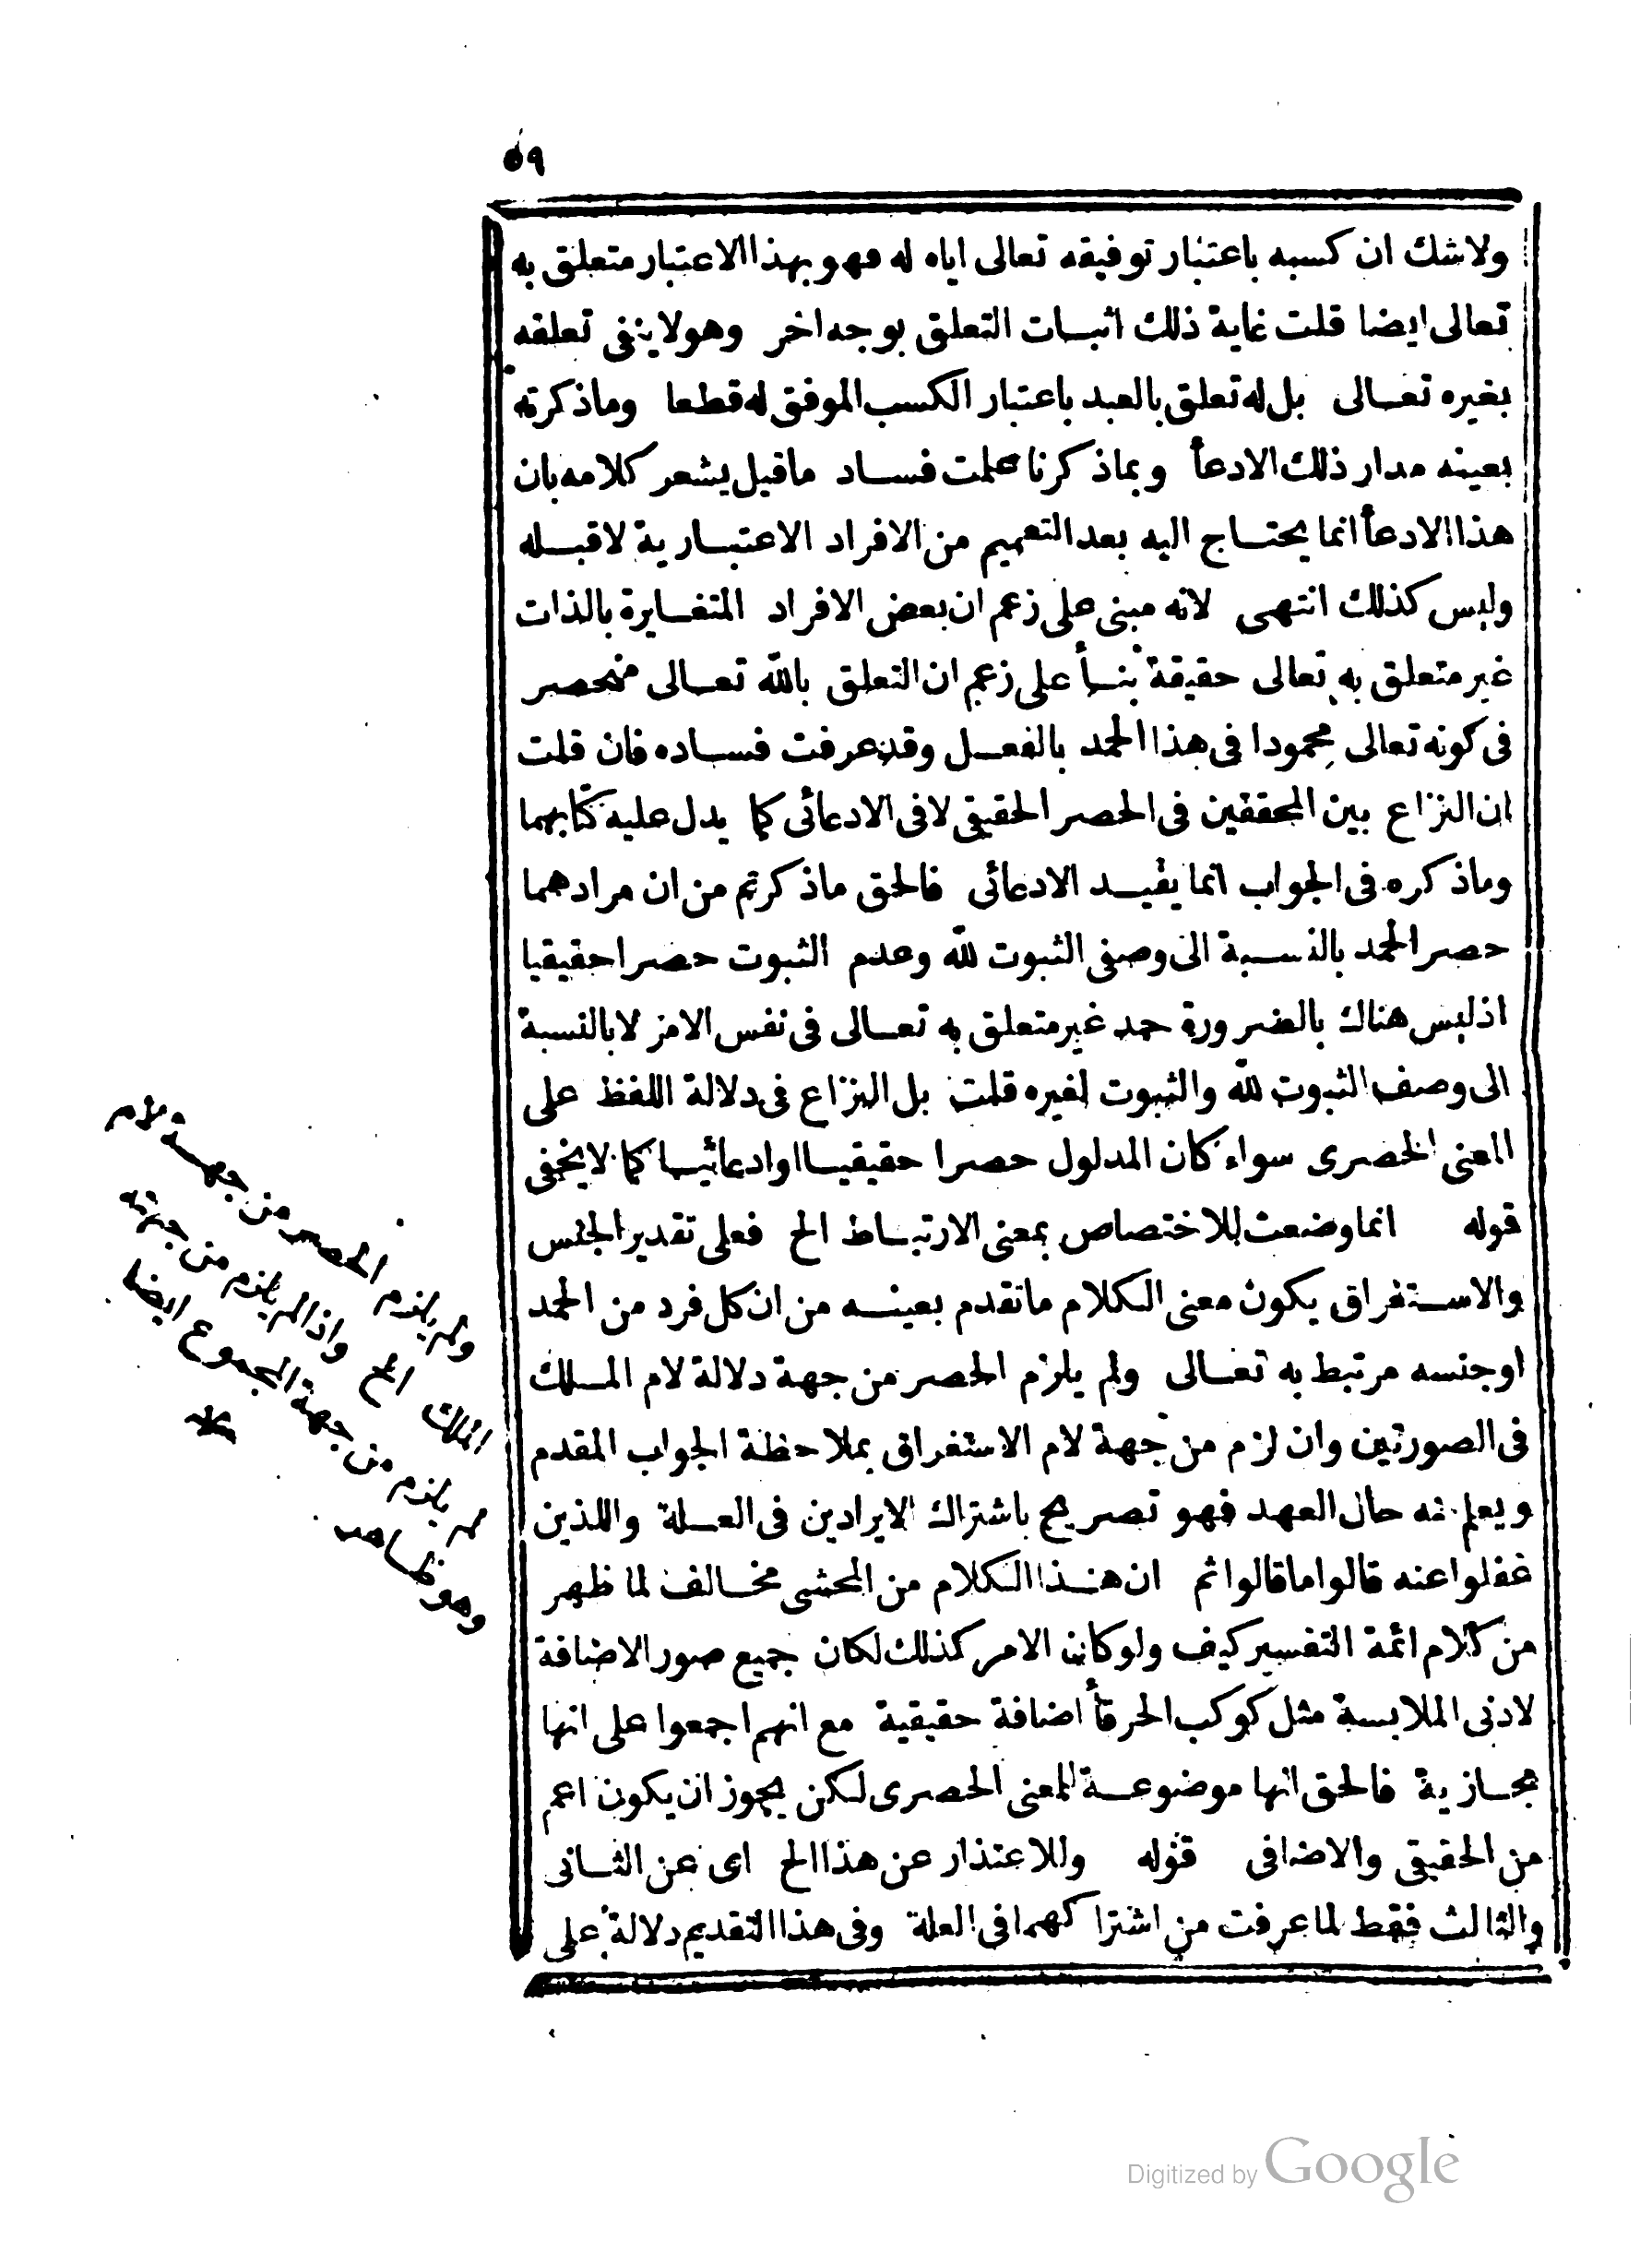 ٥٩
ولاشك ان كسبه باعتبار توفيقه تعالى اياه له فهو بهذا الاعتبار متعلق به
تعالى ايضا قلت غاية ذلك اثبات التعلق بوجه اخر وهو لاينفى تعلقه
بغيره تعالى بل له تعلق بالعبد باعتبار الكسب الموفق له قطعا وماذكرته
بعينه مدار ذلك الادعأ وبماذكرنا علمت فساد ماقيل يشعر كلامه بان
هذا الادعأ انما يحتاج اليه بعد التعميم من الافراد الاعتبارية لاقبله
وليس كذلك انتهى لانه مبنى على زعم ان بعض الافراد المتغايرة بالذات
غير متعلق به تعالى حقيقة بنأ على زعم ان التعلق بالله تعالى منحصر
فى كونه تعالى محمودا فى هذا الحمد بالفعل وقد عرفت فساده فان قلت
ان النزاع بين المحققين فى الحصر الحقيقى لافى الادعائى كما يدل عليه كتابهما
وماذكره فى الجواب انما يفيد الادعائى فالحق ماذكرتم من ان مرادهما
حصر الحمد بالنسبة الى وصفى الثبوت لله وعدم الثبوت حصرا حقيقيا
اذليس هناك بالضرورة حمد غير متعلق به تعالى فى نفس الامر لابالنسبة
الى وصف الثبوت لله والثبوت لغيره قلت بل النزاع فى دلالة اللفظ على
المعنى الحصرى سواء كان المدلول حصرا حقيقيا اوادعائيا كما لايخفى
قوله انما وضعت للاختصاص بمعنى الارتباط الخ فعلى تقدير الجنس
والاستغراق يكون معنى الكلام ماتقدم بعينه من ان كل فرد من الحمد
اوجنسه مرتبط به تعالى ولم يلزم الحصر من جهة دلالة لام الملك
فى الصورتين وان لزم من جهة لام الاستغراق بملاحظة الجواب المقدم
ويعلم منه حال العهد فهو تصريح باشتراك الايرادين فى العلة واللذين
غفلوا عنه قالوا ماقالوا ثم ان هذا الكلام من المحشى مخالف لما ظهر
من كلام ائمة التفسير كيف ولوكان الامر كذلك لكان جميع صور الاضافة
لادنى الملابسة مثل كوكب الخرقأ اضافة حقيقية مع انهم اجمعوا على انها
مجازية فالحق انها موضوعة للمعنى الحصرى لكن يجوز ان يكون اعم
من الحقيقى والاضافى قوله وللاعتذار عن هذا الخ اى عن الثانى
والثالث فقط لما عرفت من اشتراكهما فى العلة وفى هذا التقديم دلالة على
ولم يلزم الحصر من جهة لام
الملك الخ واذالم يلزم من جهته
لم يلزم من جهة المجموع ايضا
وهو ظاهر
Digitized by Google